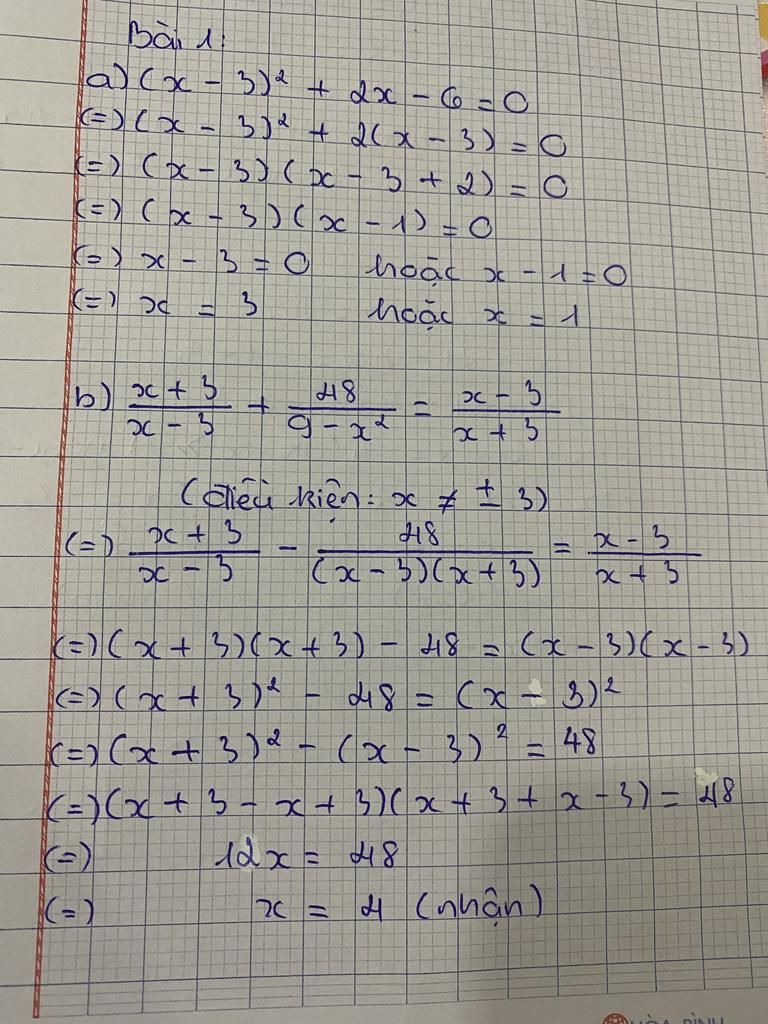 Bài 1:
a) (x - 3)² + 2x - 6 = 0
(=) (x - 3)² + 2(x - 3) = 0
(=) (x - 3)(x - 3 + 2) = 0
(=) (x - 3)(x - 1) = 0
(=) x - 3 = 0 hoặc x - 1 = 0
(=) x = 3 hoặc x = 1
b) (x + 3)/(x - 3) + 48/(9 - x²) = (x - 3)/(x + 3)
(Điều kiện: x ≠ ± 3)
(=) (x + 3)/(x - 3) - 48/((x - 3)(x + 3)) = (x - 3)/(x + 3)
(=) (x + 3)(x + 3) - 48 = (x - 3)(x - 3)
(=) (x + 3)² - 48 = (x - 3)²
(=) (x + 3)² - (x - 3)² = 48
(=) (x + 3 - x + 3)(x + 3 + x - 3) = 48
(=) 12x = 48
(=) x = 4 (nhận)